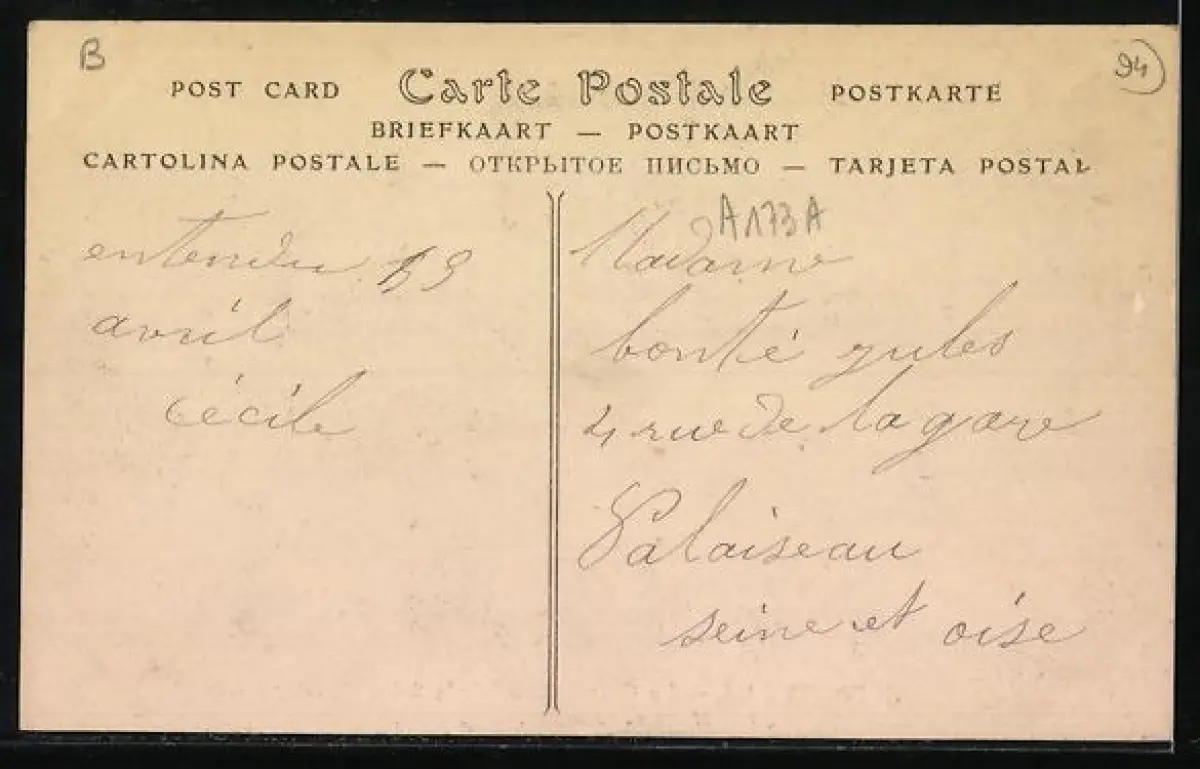 B
94
POST CARD Carte Postale POSTKARTE
BRIEFKAART — POSTKAART
CARTOLINA POSTALE — ОТКРЫТОЕ ПИСЬМО — TARJETA POSTAL
A173A
entendu
avril
cécile
Madame
bonté jules
4 rue de la gare
Palaiseau
seine et oise